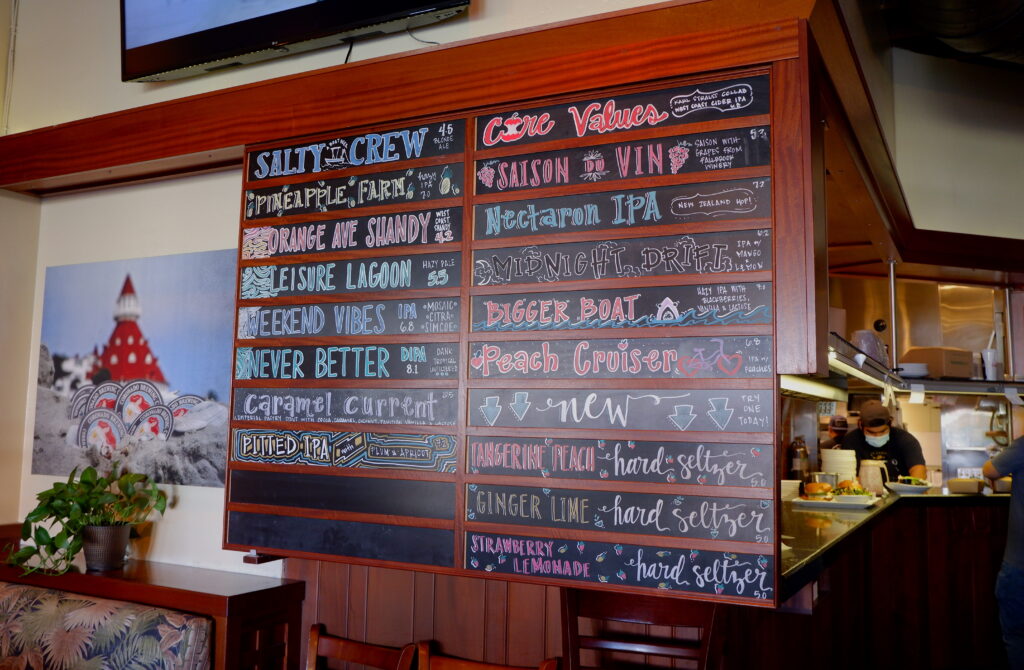 SALTY CREW
4.5
BLONDE
ALE
PINEAPPLE FARM
HAZY
IPA
7.0
ORANGE AVE SHANDY
WEST
COAST
SHANDY
4.2
LEISURE LAGOON
HAZY PALE
5.5
WEEKEND VIBES
IPA
6.8
•MOSAIC•
•CITRA•
•SIMCOE•
NEVER BETTER
DIPA
8.1
DANK
TROPICAL
Caramel Current
IMPERIAL PASTRY STOUT WITH COCOA, CARAMEL, COCONUT, VANILLA & LACTOSE
PITTED IPA
PLUM & APRICOT
Core Values
KARL STRAUSS COLLAB
WEST COAST CIDER IPA
SAISON DU VIN
SAISON WITH
GRAPES FROM
FALLBROOK
WINERY
Nectaron IPA
NEW ZEALAND HOP!
MIDNIGHT DRIFT
6.2
IPA W/
MANGO
& LEMON
BIGGER BOAT
HAZY IPA WITH
BLACKBERRIES,
VANILLA & LACTOSE
Peach Cruiser
6.8
IPA W/
PEACHES
new
TRY
ONE
TODAY!
TANGERINE PEACH hard seltzer
5.0
GINGER LIME hard seltzer
5.0
STRAWBERRY
LEMONADE
hard seltzer
5.0